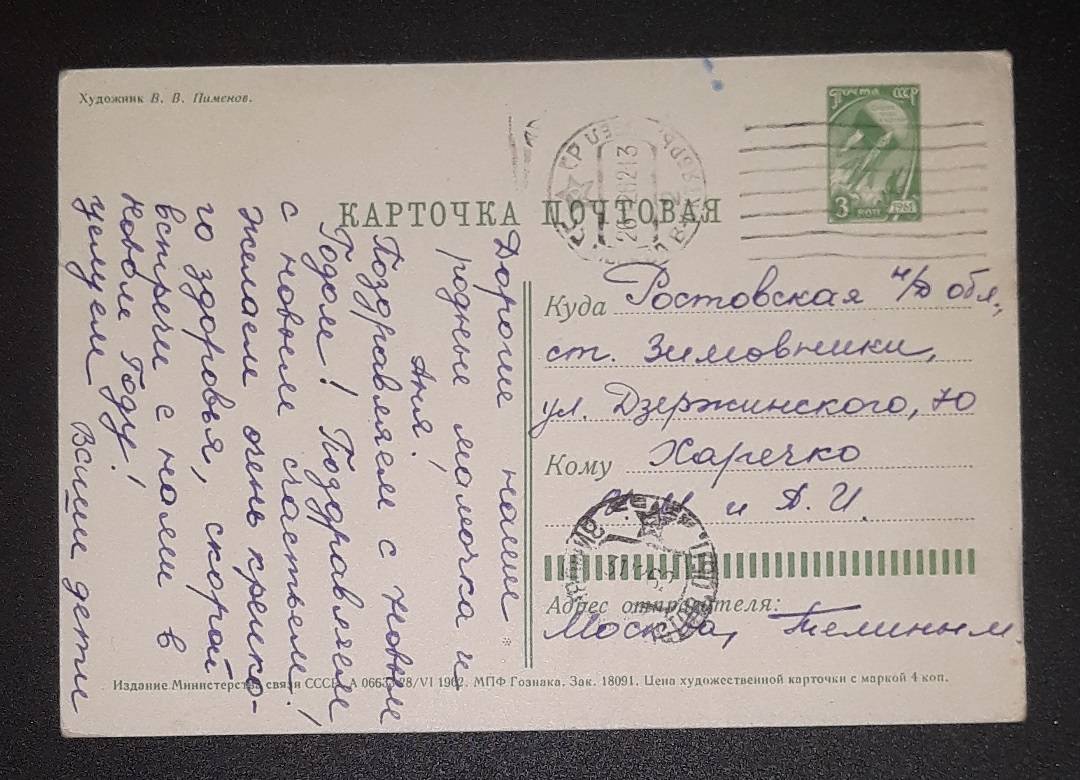 Художник В. В. Пименов.
Почта СССР
3 коп 1961
КАРТОЧКА ПОЧТОВАЯ
Дорогие наши
родные мамочка и
Аня!
Поздравляем с Новым
Годом! Поздравляем
с новым счастьем!
Желаем очень крепко-
го здоровья, скорой
встречи с нами в
новом Году!
целуем Ваши дети
Куда Ростовская н/Д обл.,
ст. Зимовники,
ул. Дзержинского, 70
Кому Харечко
и А. И.
Адрес отправителя:
Москва,
Издание Министерства связи СССР. А 0663 28/VI 1962. МПФ Гознака. Зак. 18091. Цена художественной карточки с маркой 4 коп.